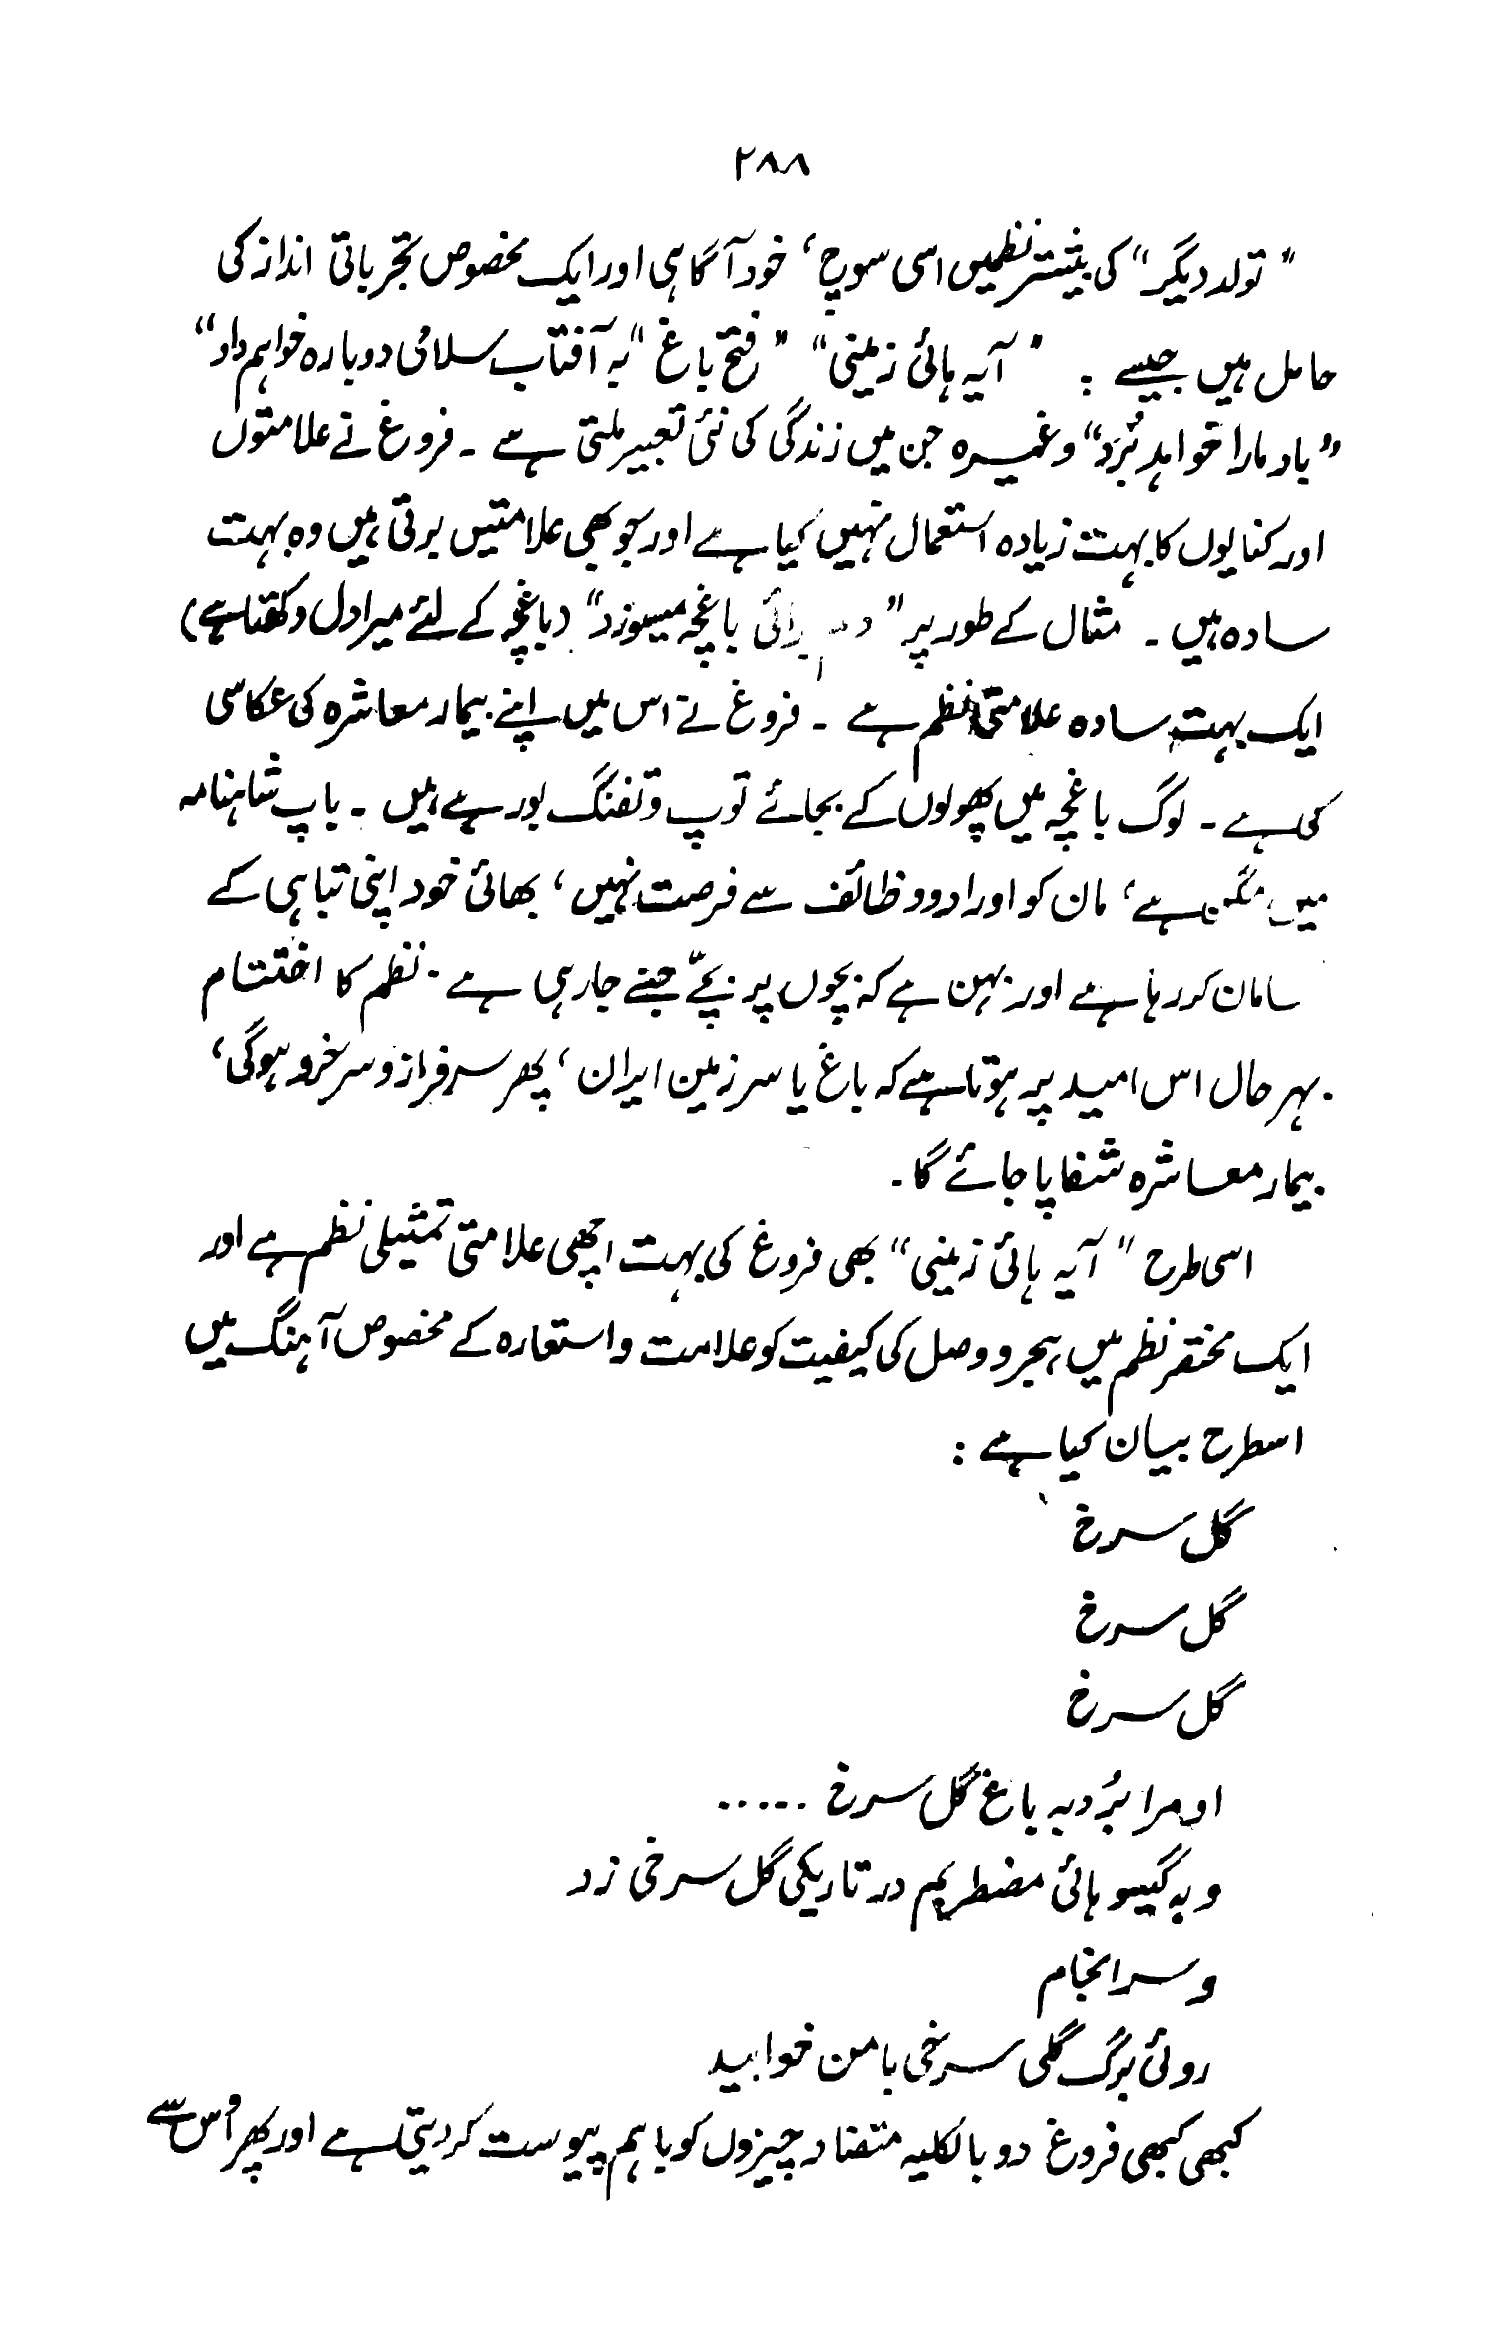 ۲۸۸
"تولد دیگر" کی بیشتر نظمیں اسی سوچ، خود آگاہی اور ایک مخصوص تجرباتی انداز کی
حامل ہیں جیسے : "آیہ ہائی زمینی" "فتح باغ" "بہ آفتاب سلامی دوبارہ خواہم داد"
"باد مارا خواہد بُرد" وغیرہ جن میں زندگی کی نئی تعبیر ملتی ہے ۔ فروغ نے علامتوں
اور کنایوں کا بہت زیادہ استعمال نہیں کیا ہے اور جو بھی علامتیں برتی ہیں وہ بہت
سادہ ہیں ۔ مثال کے طور پر " برائی باغچہ میسوزد" (باغچہ کے لئے میرا دل دکھتا ہے)
ایک بہت سادہ علامتی نظم ہے ۔ فروغ نے اس میں اپنے بیمار معاشرہ کی عکاسی
کی ہے ۔ لوگ باغچہ میں پھولوں کے بجائے توپ و تفنگ بو رہے ہیں ۔ باپ شاہنامہ
میں مگن ہے، ماں کو اوراد و وظائف سے فرصت نہیں، بھائی خود اپنی تباہی کے
سامان کر رہا ہے اور بہن ہے کہ بچوں پر بچّے جنے جا رہی ہے ۔ نظم کا اختتام
بہر حال اس امید پر ہوتا ہے کہ باغ یا سرزمین ایران، پھر سرفراز و سرخرو ہوگی،
بیمار معاشرہ شفا پا جائے گا ۔
اسی طرح "آیہ ہائی زمینی" بھی فروغ کی بہت اچھی علامتی تمثیلی نظم ہے اور
ایک مختصر نظم میں ہجر و وصل کی کیفیت کو علامت و استعارہ کے مخصوص آہنگ میں
اسطرح بیان کیا ہے :
گل سرخ
گل سرخ
گل سرخ
او مرا بُرد بہ باغ گل سرخ .....
و بہ گیسو ہائی مضطربم در تاریکی گل سرخی زد
و سرانجام
روئی برگ گلی سرخی با من خوابید
کبھی کبھی فروغ دو بالکلیہ متضاد چیزوں کو باہم پیوست کر دیتی ہے اور پھر اُس سے